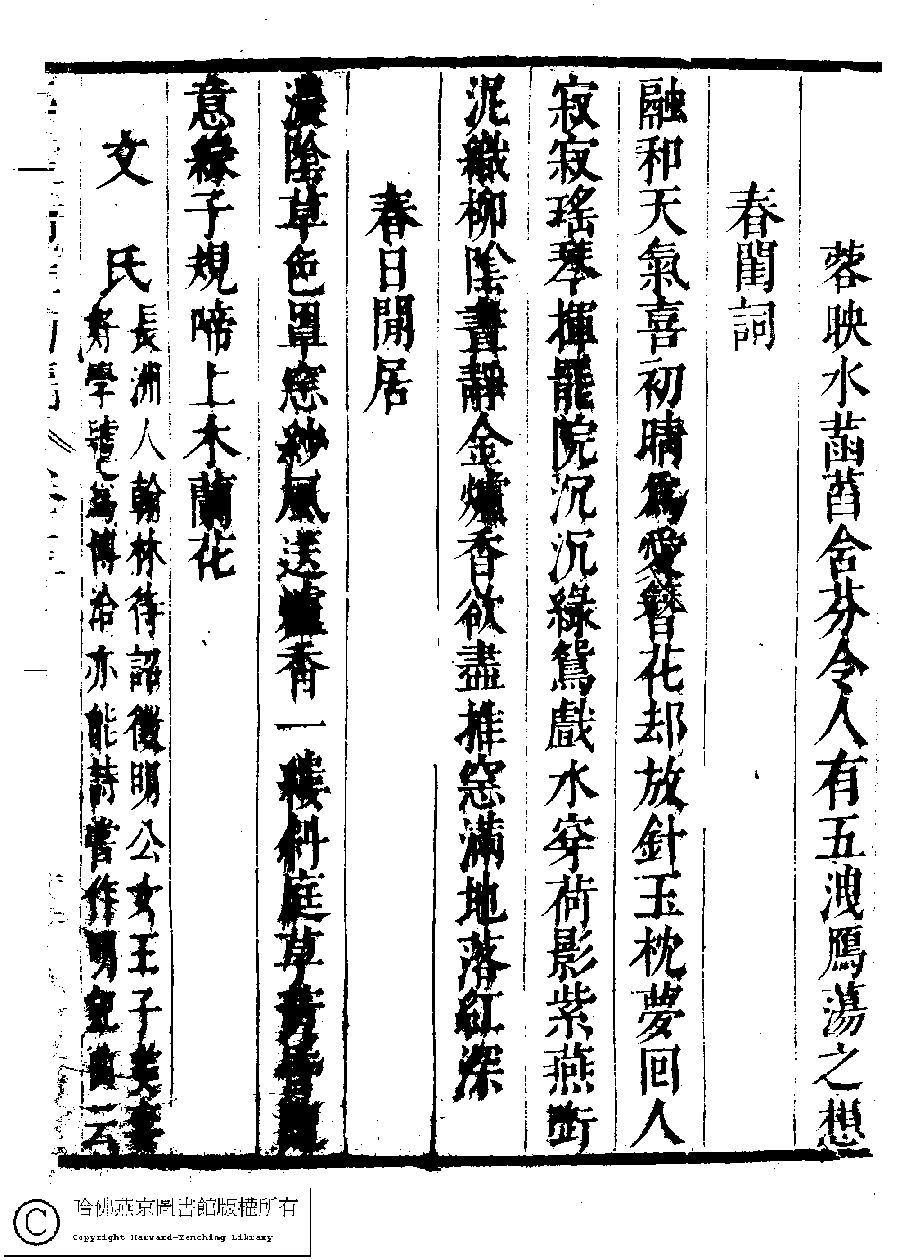 蓉映水菡萏含芬令人有五洩鴈蕩之想
春閨詞
融和天氣喜初晴爲愛簪花却放針玉枕夢回人
寂寂瑤琴揮罷院沉沉綠鴛戲水穿荷影紫燕銜
泥織柳陰晝靜金爐香欲盡推窓滿地落紅深
春日閒居
濃陰草色罩窓紗風送爐香一縷斜庭草
意緣子規啼上木蘭花
文氏
長洲人翰林待詔徵明公女王子美妻
好學 爲博洽亦能詩嘗作明 云
哈佛燕京圖書館版權所有
Copyright Harvard-Yenching Library